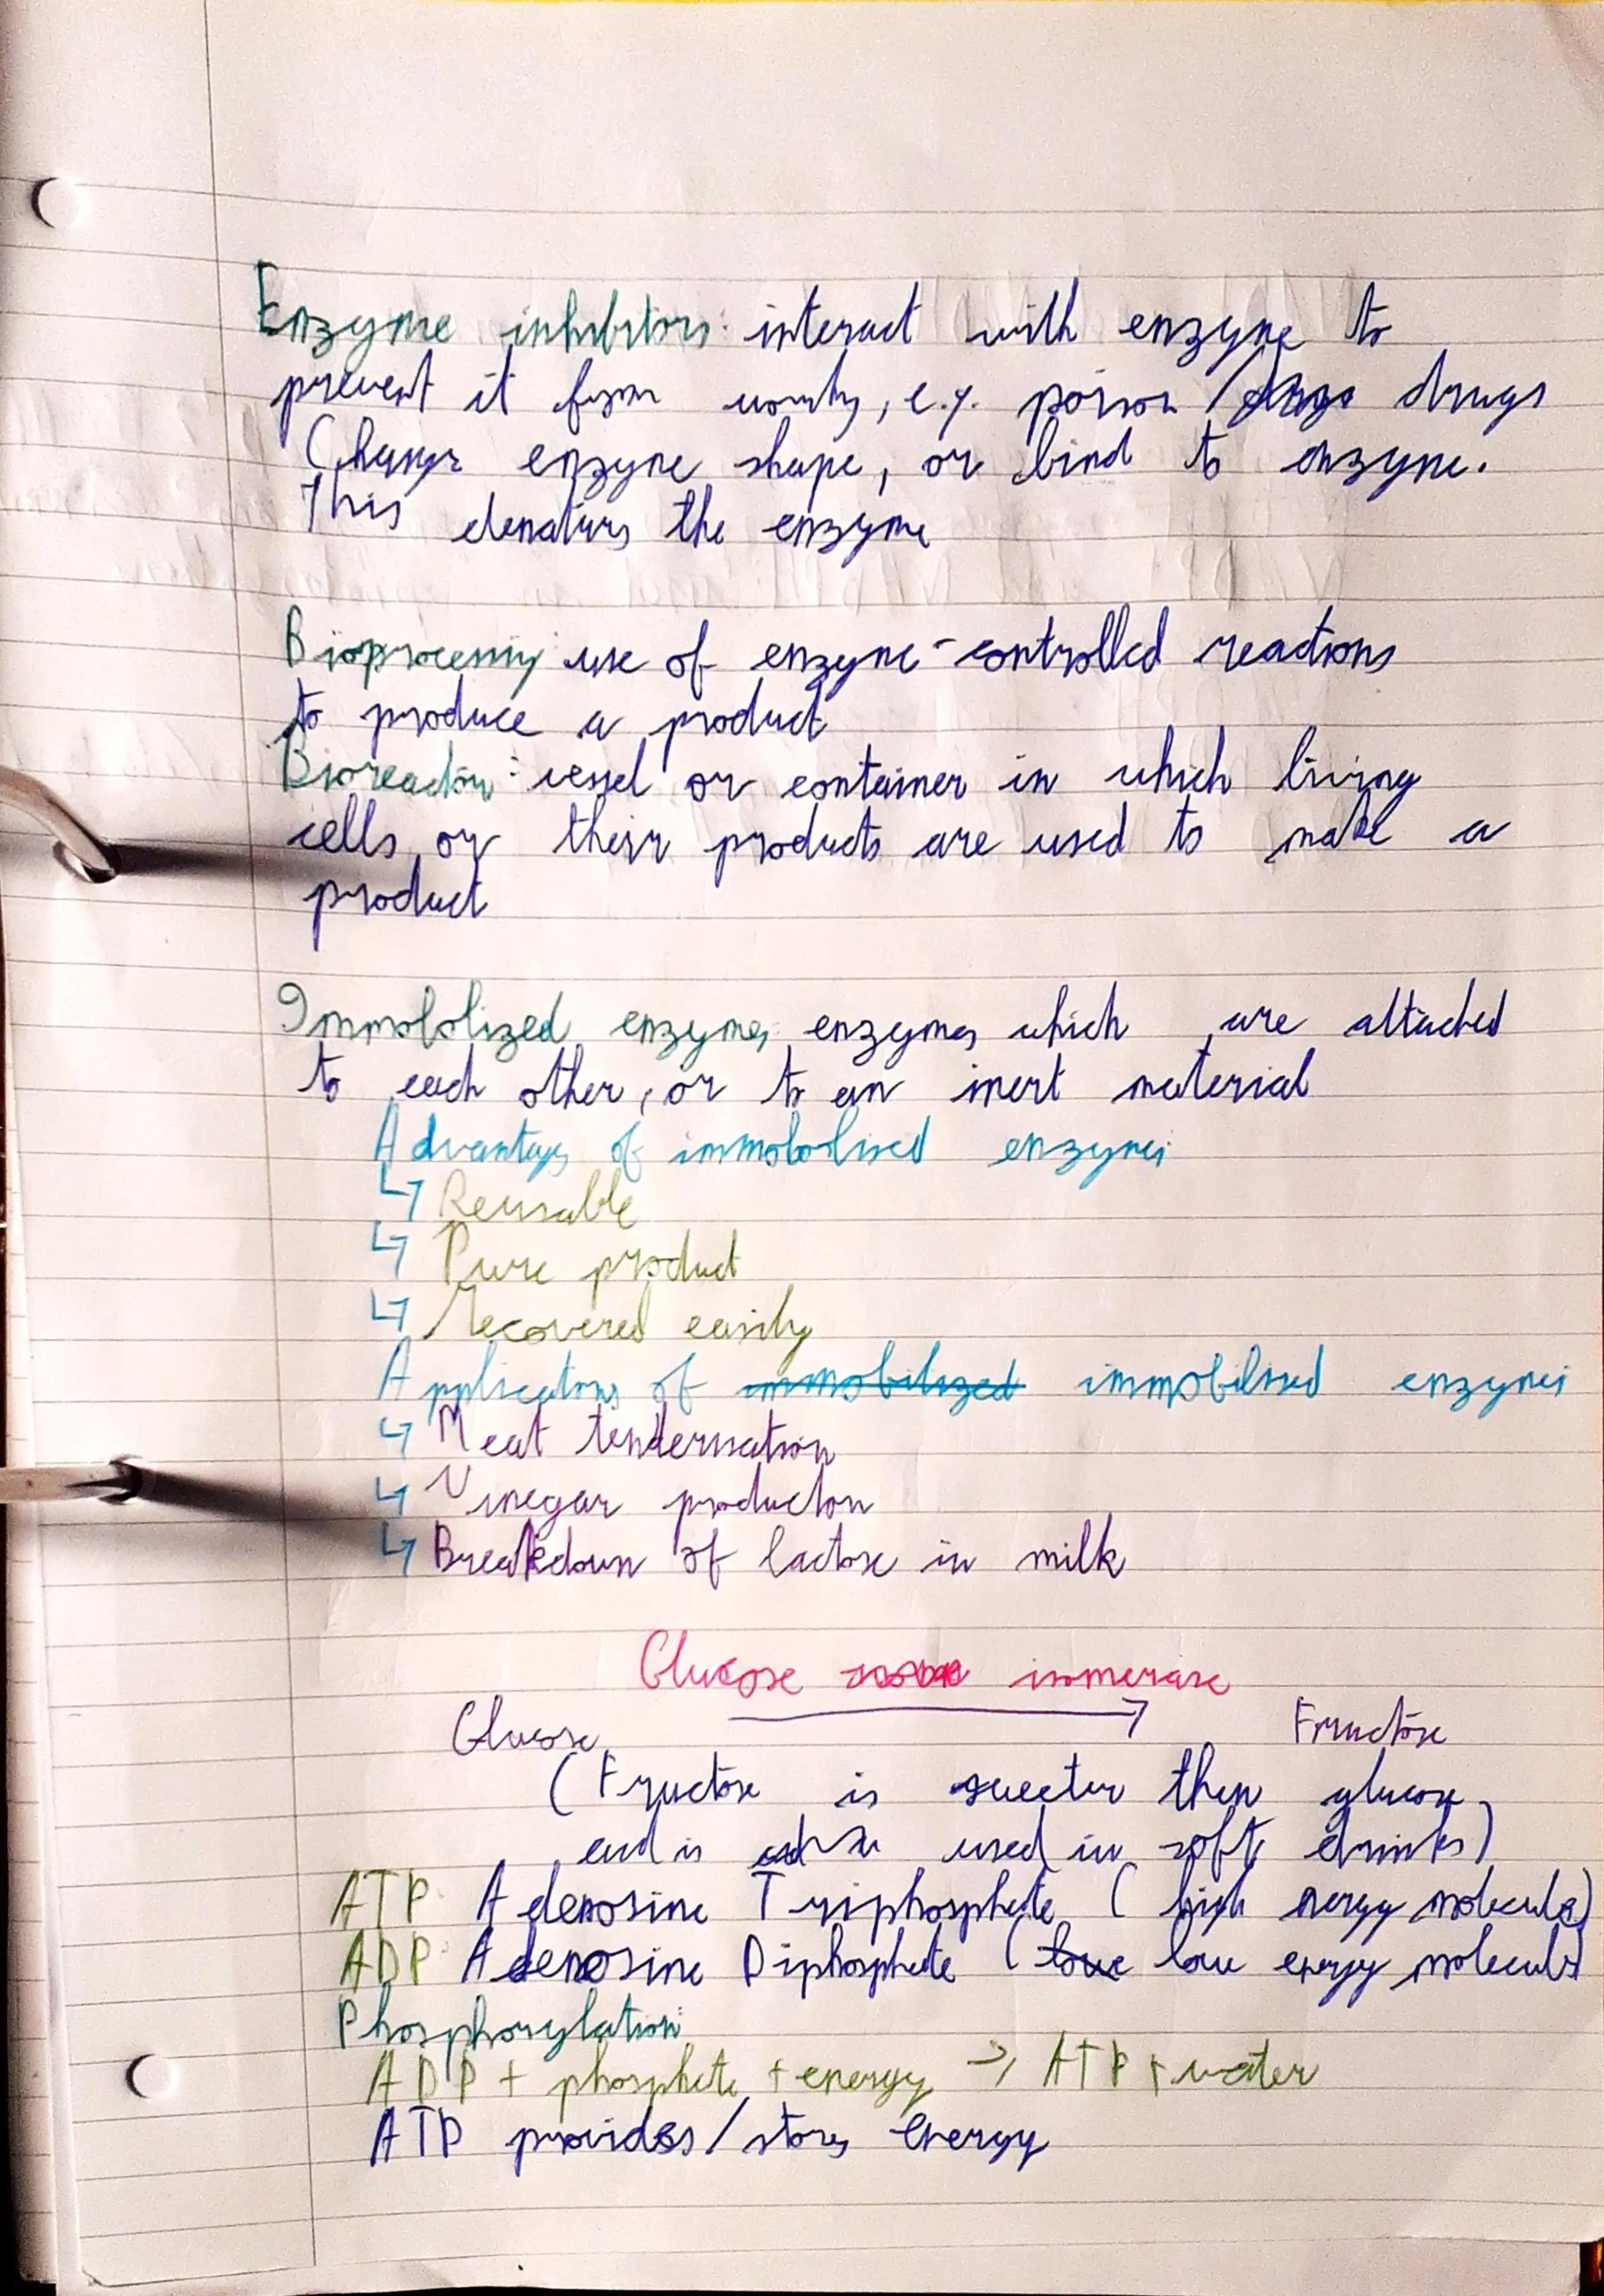 Enzyme inhibitors: interact with enzyme to
prevent it from working, e.g. poison / drugs drugs
Change enzyme shape, or bind to enzyme.
This denaturs the enzyme
Bioprocessing: use of enzyme-controlled reactions
to produce a product
Bioreactor: vessel or container in which living
cells or their products are used to make a
product
Immobolized enzymes: enzymes which are attached
to each other, or to an inert material
Advantages of immobolised enzymes:
↳ Reusable
↳ Pure product
↳ recovered easily
Applications of immobilized immobilised enzymes
↳ Meat tenderisation
↳ Vinegar production
↳ Breakdown of lactose in milk
Glucose isomerase
Glucose → Fructose
(Fructose is sweeter then glucose,
and is used in soft drinks)
ATP Adenosine Triphosphate (high energy molecule)
ADP Adenosine Diphosphate (low low energy molecule)
Phosphorylation:
ADP + phosphate + energy → ATP + water
ATP provides/stores energy